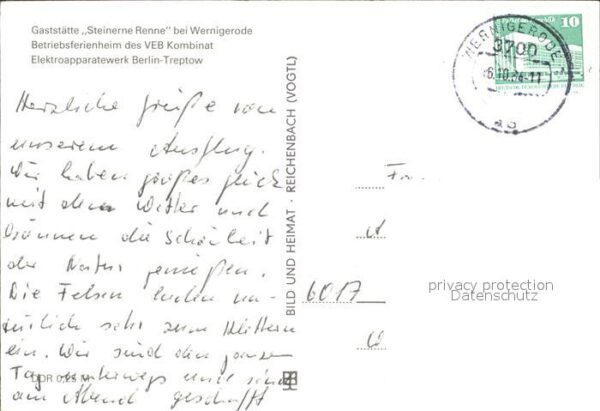 Gaststätte „Steinerne Renne" bei Wernigerode
Betriebsferienheim des VEB Kombinat
Elektroapparatewerk Berlin-Treptow
10
WERNIGERODE
3700
6.10.84-11
Herzliche Grüße von
unserem Ausflug.
Wir haben großes Glück
mit dem Wetter und
können die Schönheit
der Natur genießen.
Die Felsen laden na-
türlich sehr zum Klettern
ein. Wir sind den ganzen
Tag unterwegs und sind
am Abend geschafft
DDR 0,25 M
BILD UND HEIMAT · REICHENBACH (VOGTL)
6017
privacy protection
Datenschutz